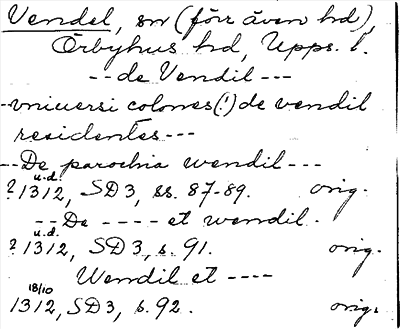 Vendel, sn (förr även hd),
Örbyhus hd, Upps. l.
-- de Vendil ---
-vniuersi colones(!) de vendil
residentes ---
-- De parochia wendil ---
u.d.
? 1312, SD3, ss. 87-89. orig.
-- De ---- et wendil.
u.d.
? 1312, SD3, s. 91. orig.
Wendil et ----
18/10
1312, SD3, s. 92. orig.